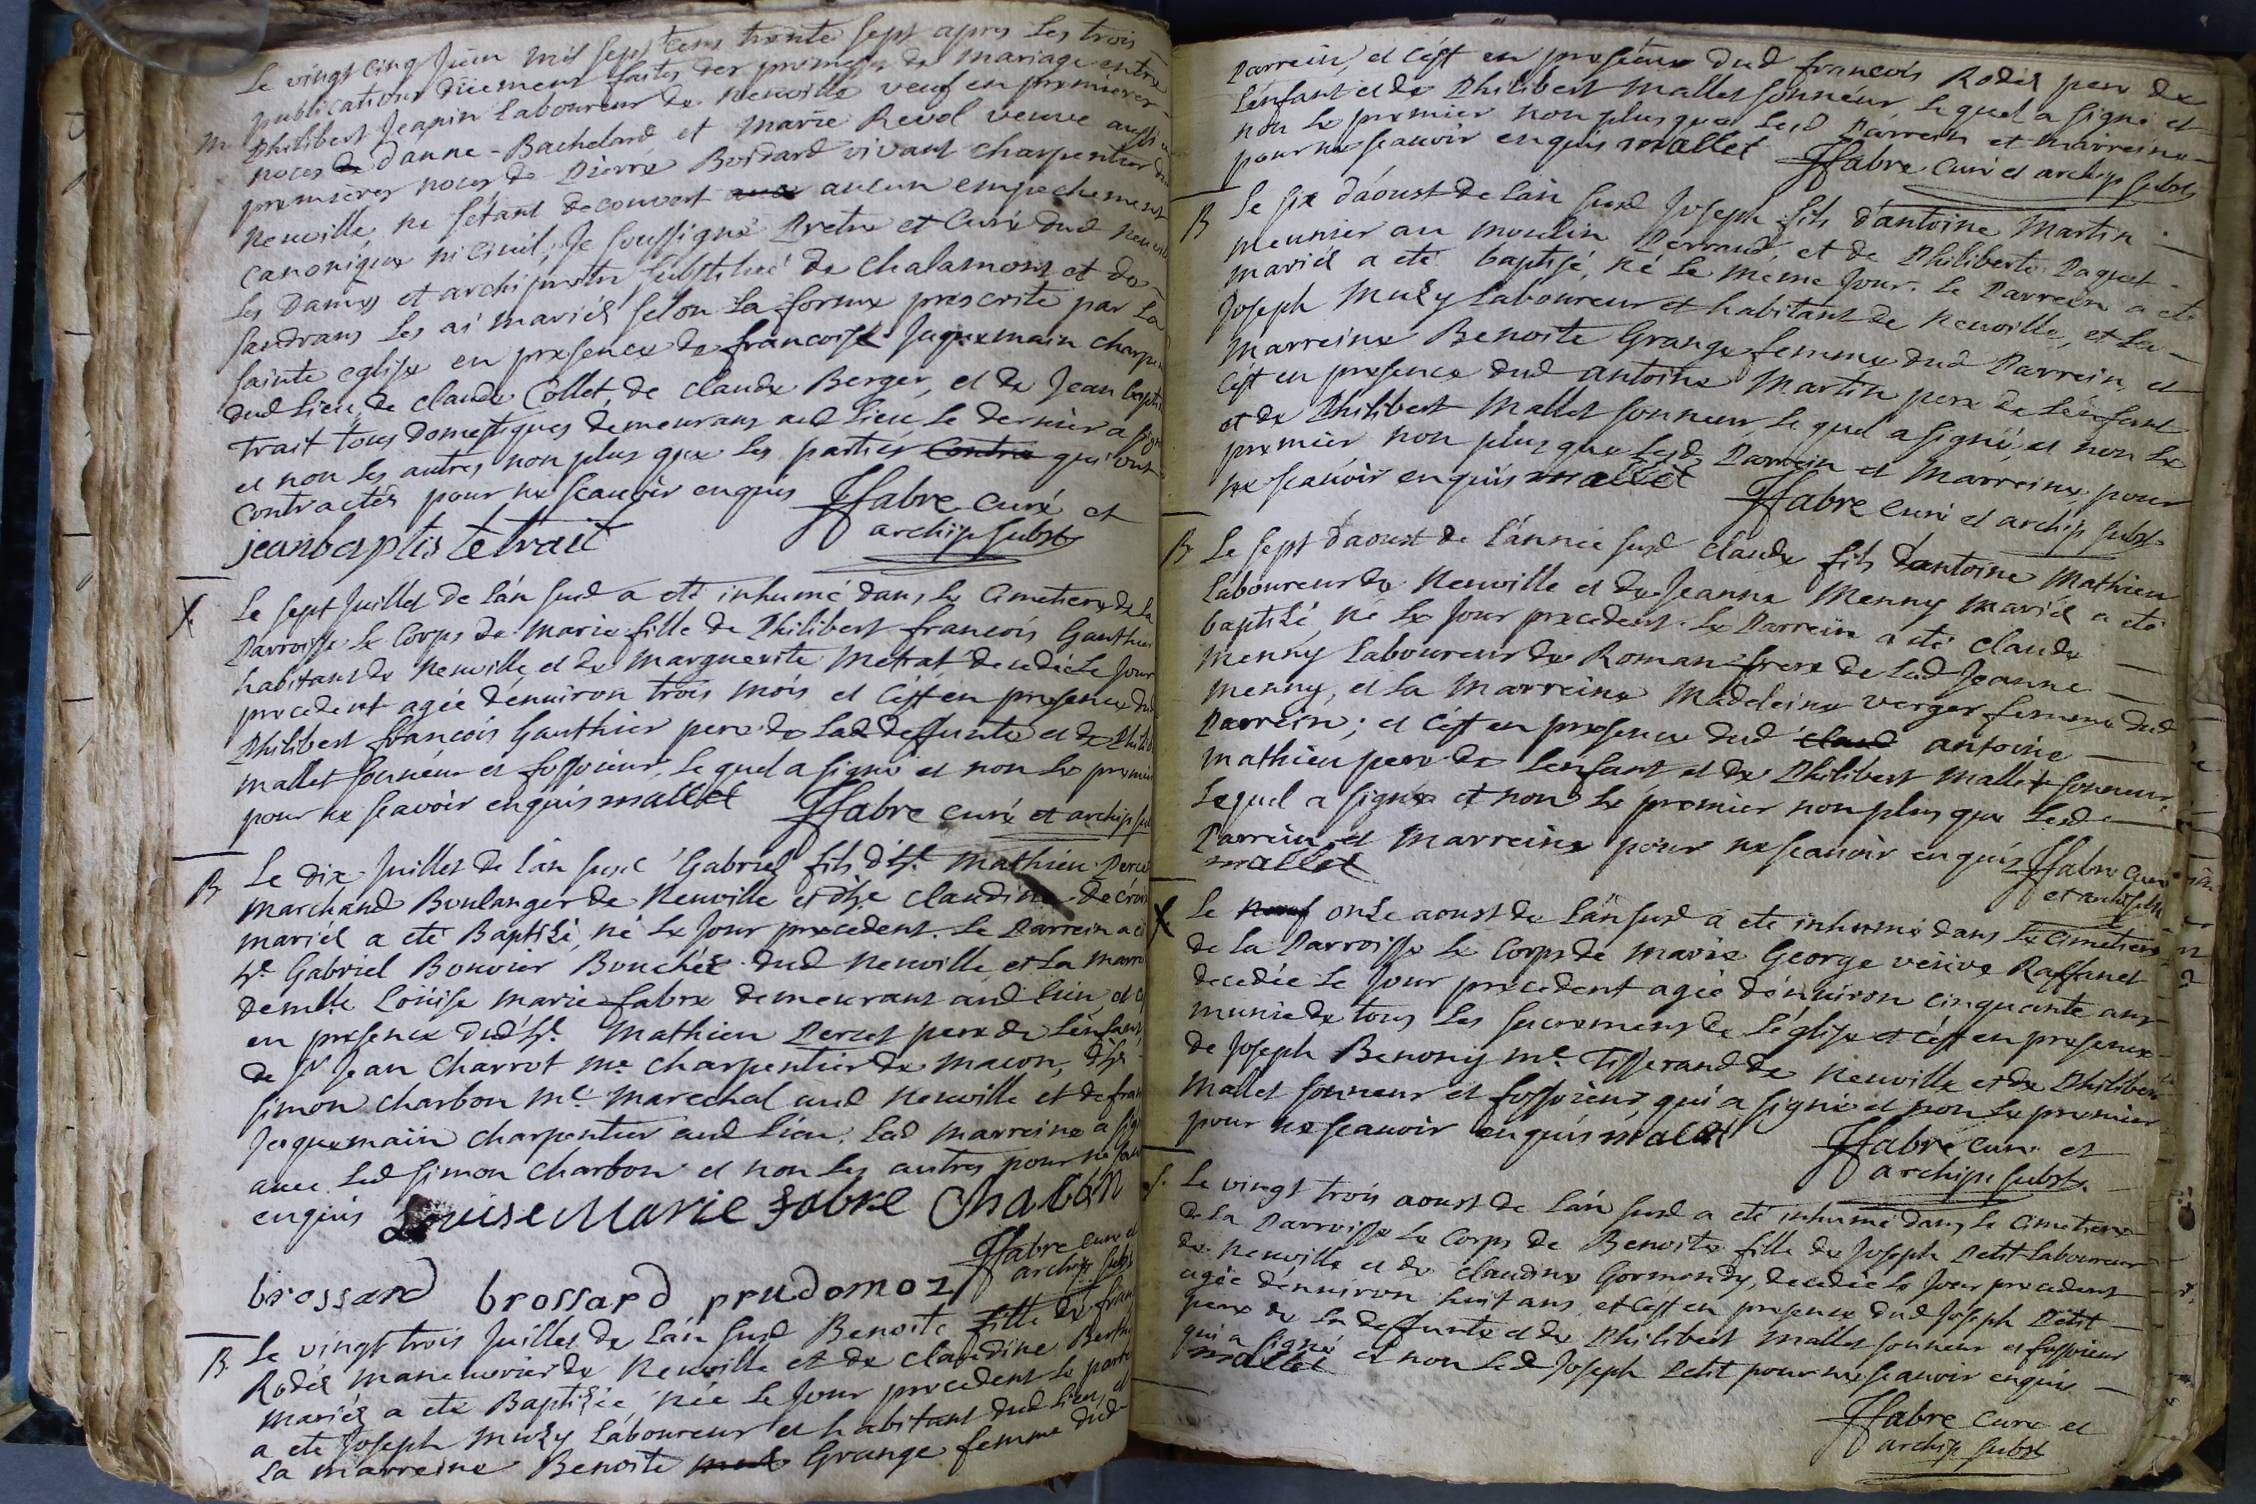 Le vingt cinq Juin mil sept cens trente sept apres les trois
publications düement faites des promesses de mariage entre
M. Philibert Jeanin Laboureur de Neuville veuf en premieres
noces de d'anne Bachelard et marie Revol veuve aussi en
premieres noces de Pierre Boidard vivant charpentier dud
Neuville ne s'étant decouvert aucun empechement
canonique ni civil, Je soussigné Pretre et Curé dud Neuville
Les Dames et archipretre substitué de Chalamont et de
Sandrans les ai mariés selon la forme prescrite par La
Sainte eglise en presence de francoise Jaquemain charpen
dud Lieu, de claude Collet, de claude Berger, et de Jean bapti
trait tous Domestiques demeurans aud Lieu le dernier a signé
et non les autres non plus que les parties contra qui ont
contractés pour ne scauoir enquis ffabre curé et
jeanbaptiste trait archip. subst.
Le sept Juillet de l'an susd a eté inhumé dans le Cimetiere de La
Parroisse le Corps de marie fille de Philibert francois Gauthier
habitant de Neuville et de Marguerite metrat decedée le Jour
precedent agée denuiron trois mois et c'est en presence dud
Philibert francois Gauthier pere de Lad deffunte et de Phili
mallet sonneur et fossoieur, le quel a signé et non le premier
pour ne scavoir enquis mallet ffabre curé et archip su
B Le dix Juillet de l'an susd Gabriel fils d'hr. Mathieu Perce
marchand Boulanger de Neuville et d'he claudine decroi
mariés a eté Baptisé, né le Jour precedent. Le Parrein a é
hr. Gabriel Bouvier Boucher dud Neuville et La marr
demlle Loüise marie fabre demeurant aud lieu, et c
en presence dud hr. Mathieu Percet pere de L'enfant,
de Sr Jean Charrot me. charpentier de macon, d'hr
Simon charbon me. marechal aud Neuville et de fran
Jaquemain charpentier aud lieu. Lad marreine a sig
avec Led Simon Charbon et non les autres pour ne scau
enquis Louise Marie fabre Chabon
ffabre curé et
archip. subst
brossard brossard prudomoz
B Le vingt trois Juillet de l'an susd Benoite fille de fran
Rodés maneuvrier de Neuville et de claudine Berth
mariés a eté Baptisée, née le Jour precedent le parre
a eté Joseph muzy Laboureur et habitant dud lieu, et
La marreine Benoite Grange femme dud
Parrein, et c'est en presence dud francois Rodés pere de
L'enfant et de Philibert mallet sonneur le quel a signé et
non le premier non plus que lesd Parrein et marreine
pour ne scauoir enquis mallet ffabre curé et archip subst
B Le six d'áoust de l'an susd Joseph fils d'antoine Martin
meunier au moulin Perraud, et de Philiberte Paquet
mariés a eté baptisé, né le même Jour. Le Parrein a eté
Joseph Muzy Laboureur et habitant de Neuville, et La
Marreine Benoite Grange femme dud Parrein, et
c'est en presence dud antoine Martin pere de L'enfant
et de Philibert Mallet sonneur le quel a signé et non le
premier non plus que Lesd Parrein et Marreine pour
ne scauoir enquis mallet ffabre curé et archip subst.
B Le sept d'aoust de l'année susd claude fils d'antoine Mathieu
Laboureur de Neuville et de Jeanne Menny mariés a eté
baptisé, né le Jour precedent. Le Parrein a eté claude
Menny Laboureur de Roman frere de Lad Jeanne
Menny, et La Marreine Madeleine verger femme dud
Parrein; et c'est en presence dud claud antoine
Mathieu pere de L'enfant et de Philibert Mallet sonneur
Lequel a signé et non le premier non plus que Lesd
Parrein et Marreine pour ne scauoir enquis ffabre curé
mallet et archip subst
Le neuf onze aoust de l'an susd a eté inhumé dans le Cimetiere
de La Parroisse le Corps de marie George veuve Raffanel
decedée le Jour precedent agée d'enuiron cinquante ans
munie de tous les sacremens de L'église et c'est en presence
de Joseph Benony me. Tisserand de Neuville et de Philibert
Mallet sonneur et fossoieur, qui a signé et non le premier
pour ne scauoir enquis mallet ffabre curé et
archip. subst.
Le vingt trois aoust de l'an susd a eté inhumé dans le Cimetiere
de La Parroisse le Corps de Benoite fille de Joseph Petit Laboureur
de Neuville et de claudine Gormondy, decedée le Jour precedent
agée d'enuiron huit ans et c'est en presence dud Joseph Petit
pere de La deffunte et de Philibert Mallet sonneur et fossoieur
qui a signé et non Led Joseph Petit pour ne scauoir enquis
mallet
ffabre curé et
archip subst